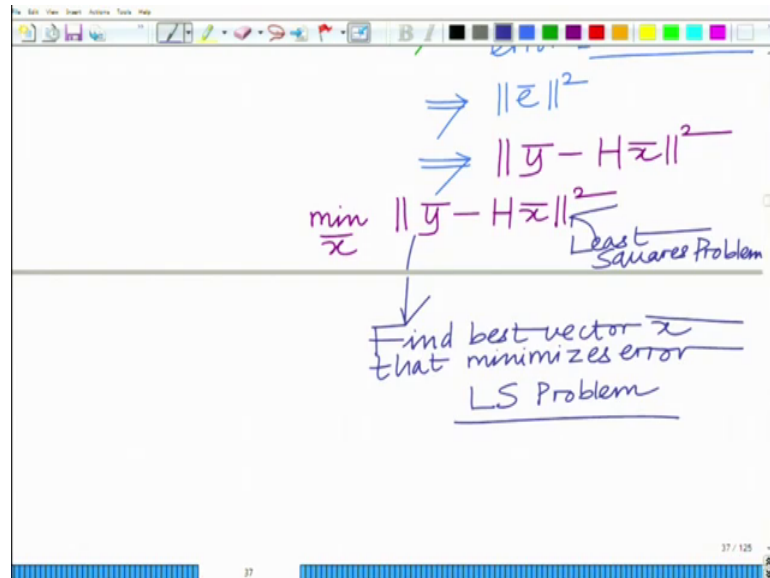 File Edit View Insert Actions Tools Help
B I
⇒ ‖e̅‖²
⇒ ‖y̅ − Hx̅‖²
min ‖y̅ − Hx̅‖²
x̅
Least
Squares Problem
Find best vector x̅
that minimizes error
LS Problem
37 / 125
37